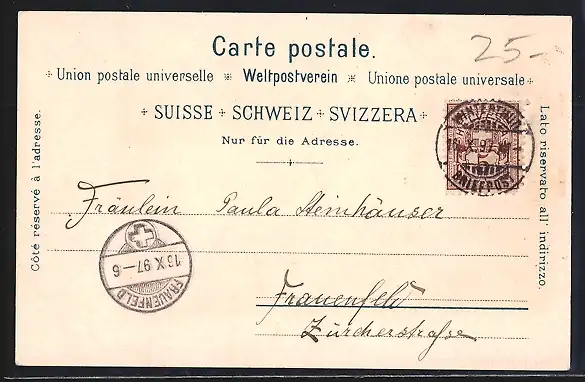 25.-
Carte postale.
Union postale universelle ※ Weltpostverein ※ Unione postale universale
SUISSE + SCHWEIZ + SVIZZERA
Nur für die Adresse.
Côté réservé à l'adresse.
Lato riservato all' indirizzo.
BRIEFPOST
Fräulein Paula Steinhäuser
Frauenfeld
Zürcherstraße
FRAUENFELD
16 X 97 — 6